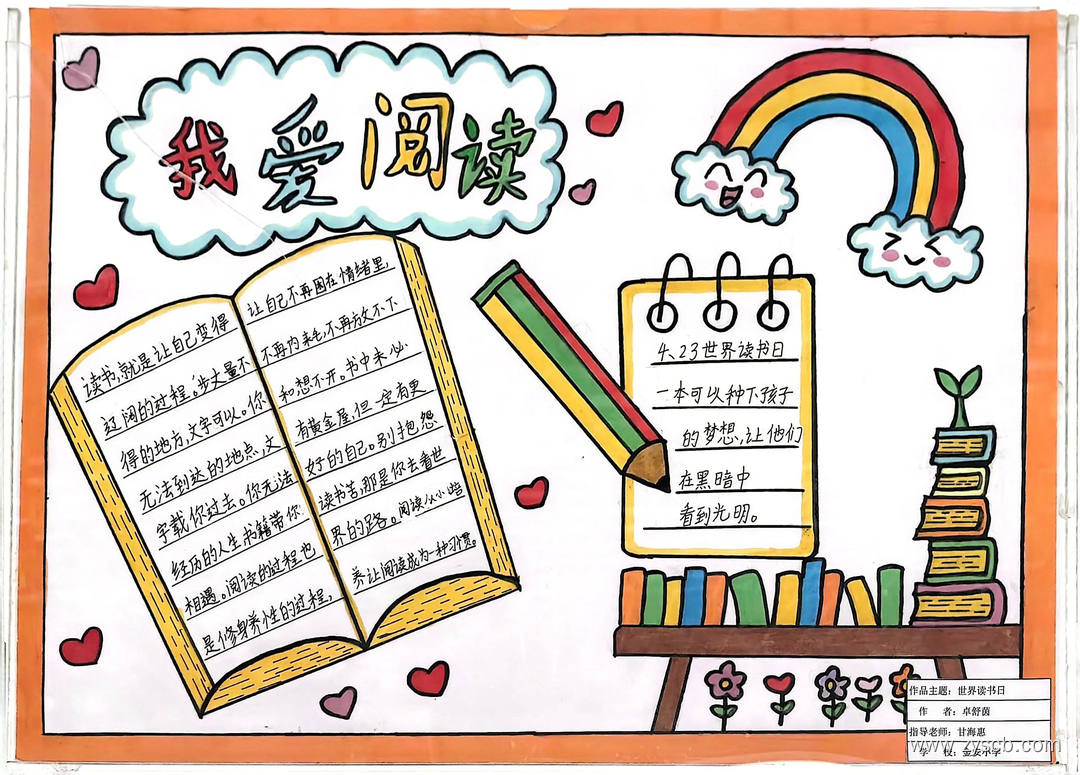 我爱阅读
读书,就是让自己变得
辽阔的过程。步丈量不
得的地方,文字可以。你
无法到达的地点,文
字载你过去。你无法
经历的人生书籍带你
相遇。阅读的过程也
是修身养性的过程,
让自己不再困在情绪里,
不再内耗,不再放不下
和想不开。书中未必
有黄金屋,但一定有更
好的自己。别抱怨
读书苦,那是你去看世
界的路。阅读从小培
养让阅读成为一种习惯。
4、23世界读书日
一本可以种下孩子
的梦想,让他们
在黑暗中
看到光明。
作品主题:世界读书日
作 者:卓舒茵
指导老师:甘海惠
学 校:金安小学
www.zyscb.com